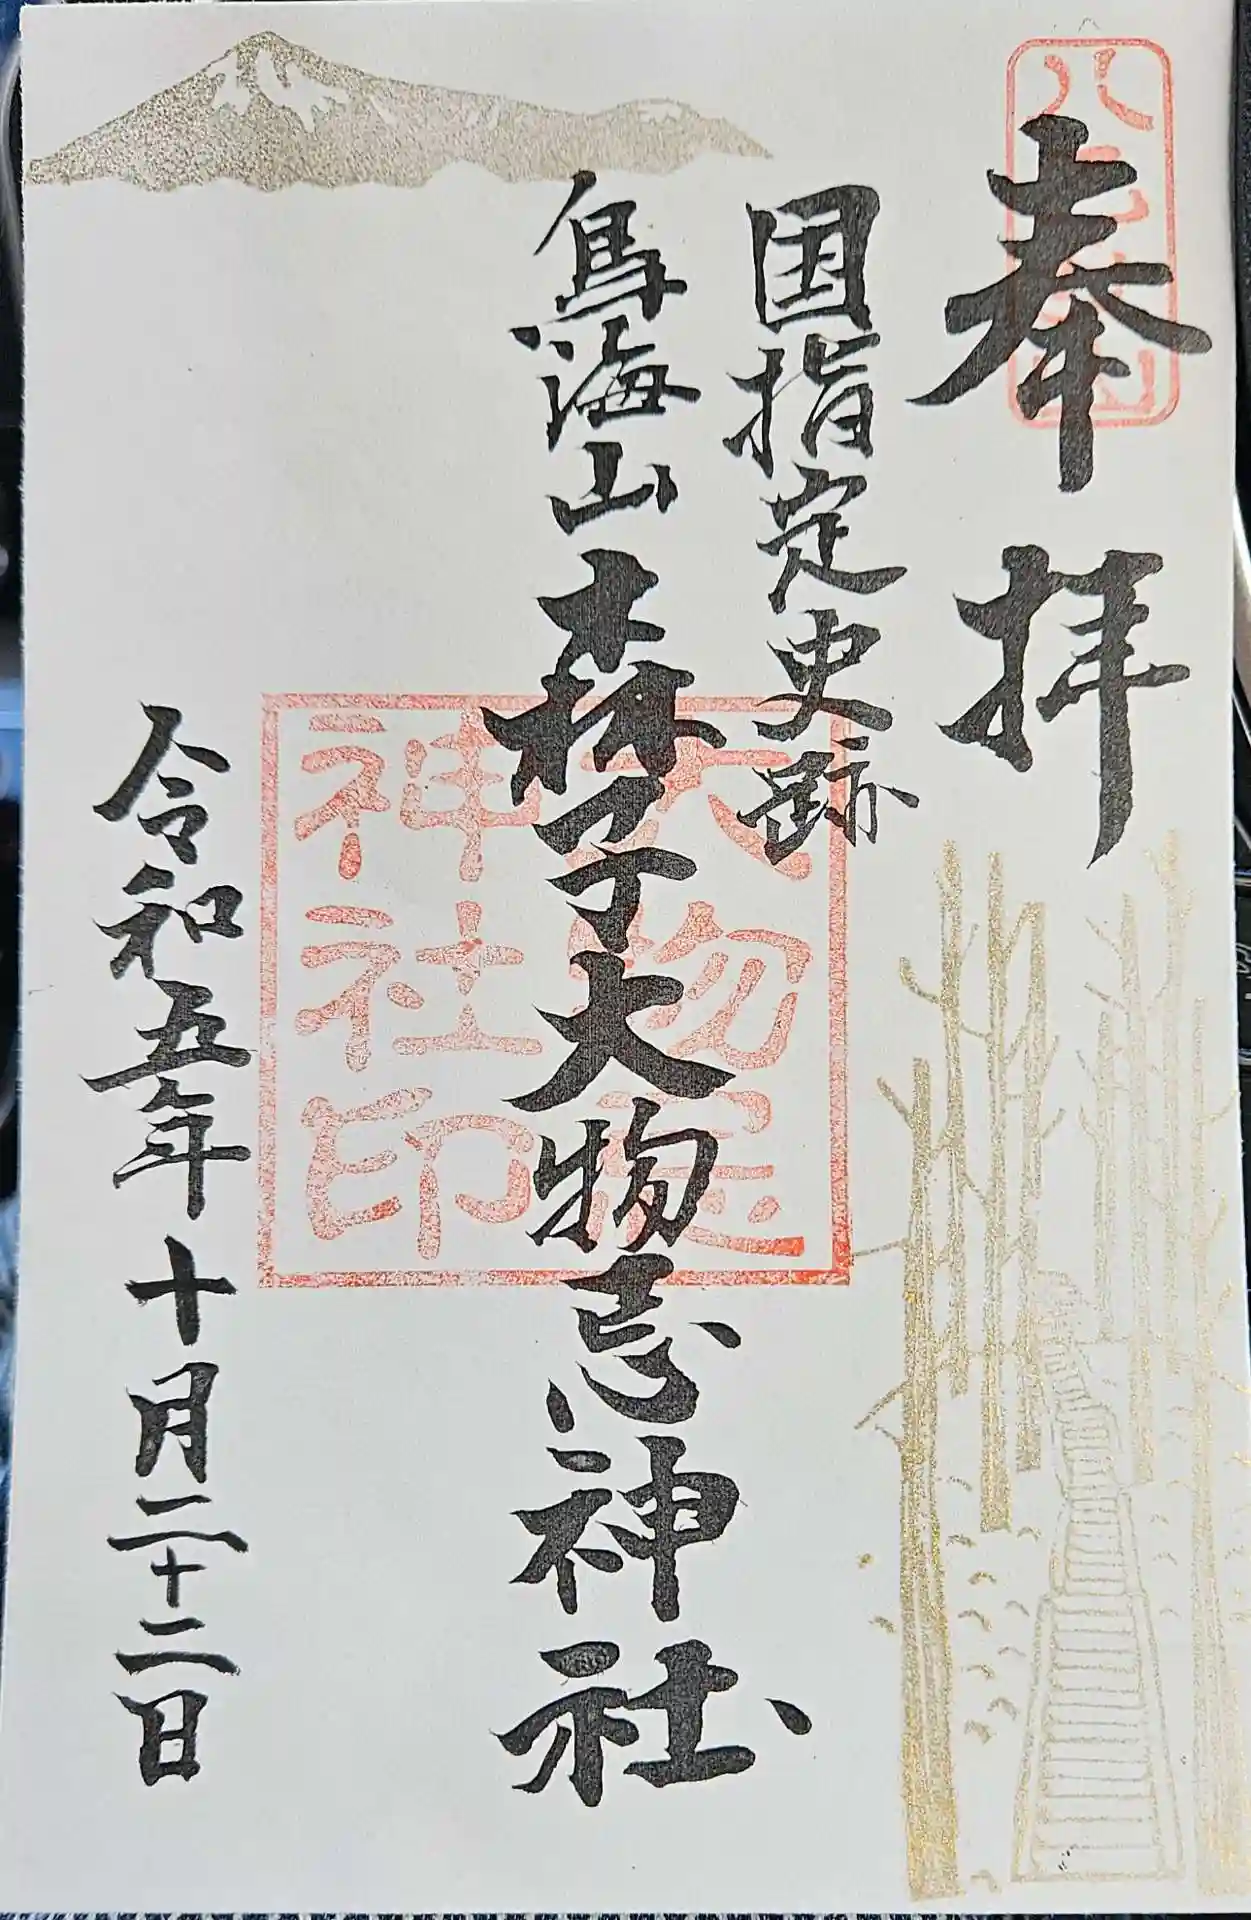 奉拝
国指定史跡
鳥海山森子大物忌神社
令和五年十月二十二日
大物忌
神社印